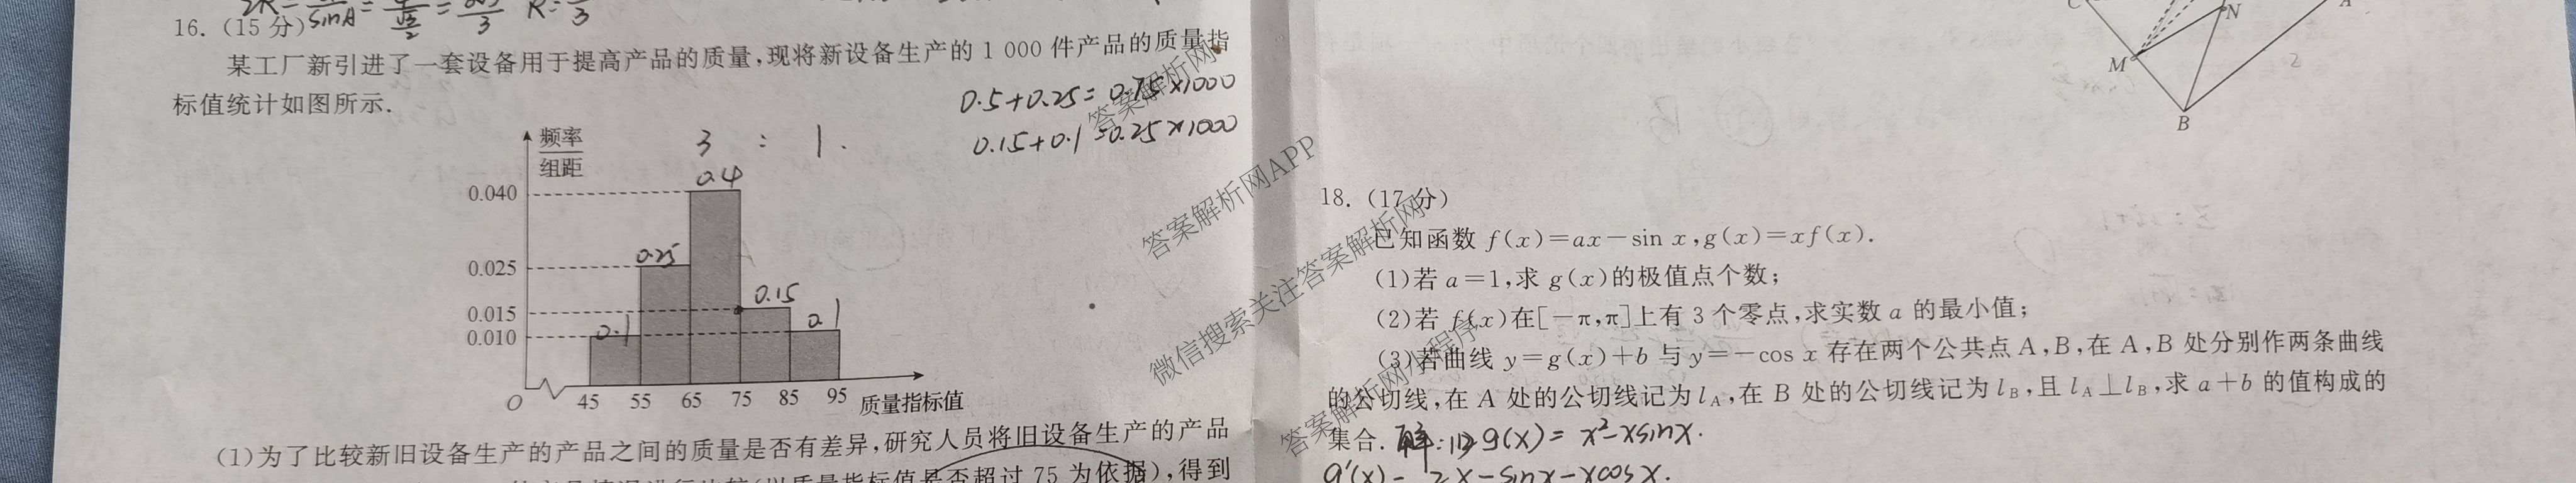 2R= sinA = = 3 R= 3
16. (15分)
某工厂新引进了一套设备用于提高产品的质量,现将新设备生产的1 000件产品的质量指
标值统计如图所示.
0.5+0.25=0.75×1000
0.15+0.1=0.25×1000
3 : 1.
频率
组距
0.040
0.025
0.015
0.010
0.1
0.25
0.4
0.15
0.1
O 45 55 65 75 85 95 质量指标值
(1)为了比较新旧设备生产的产品之间的质量是否有差异,研究人员将旧设备生产的产品
质量指标值是否超过75为依据),得到
C
N
A
M
B
18. (17分)
已知函数f(x)=ax-sin x,g(x)=xf(x).
(1)若a=1,求g(x)的极值点个数;
(2)若f(x)在[-π,π]上有3个零点,求实数a的最小值;
(3)若曲线y=g(x)+b与y=-cos x存在两个公共点A,B,在A,B处分别作两条曲线
的公切线,在A处的公切线记为lA,在B处的公切线记为lB,且lA⊥lB,求a+b的值构成的
集合.
解:(1)g(x)=x²-xsinx.
g'(x)=2x-sinx-xcosx.
答案解析网
答案解析网APP
微信搜索关注答案解析网
答案解析网小程序